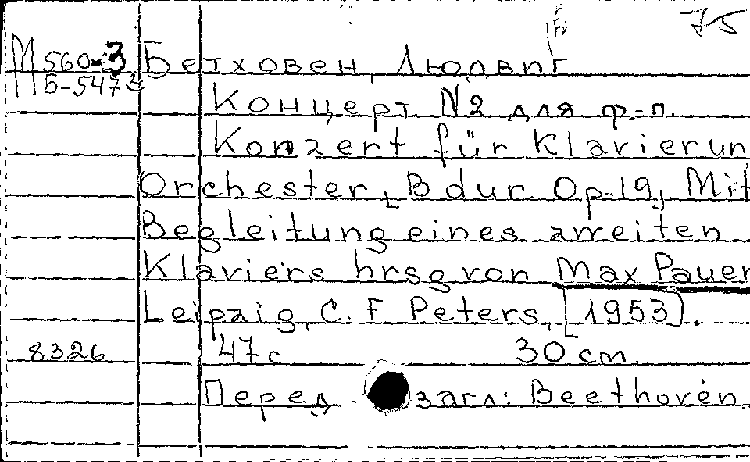 75
М560-3 Бетховен, Людвиг
Б-5473
Концерт N2 для ф-п.
Konzert für Klavier un
Orchester, B dur. Op.19, Mit
Begleitung eines zweiten
Klaviers hrsg von Max Pauer
Leipzig, C. F Peters, [1953].
8326 47с 30 cm
Перед загл: Beethoven.